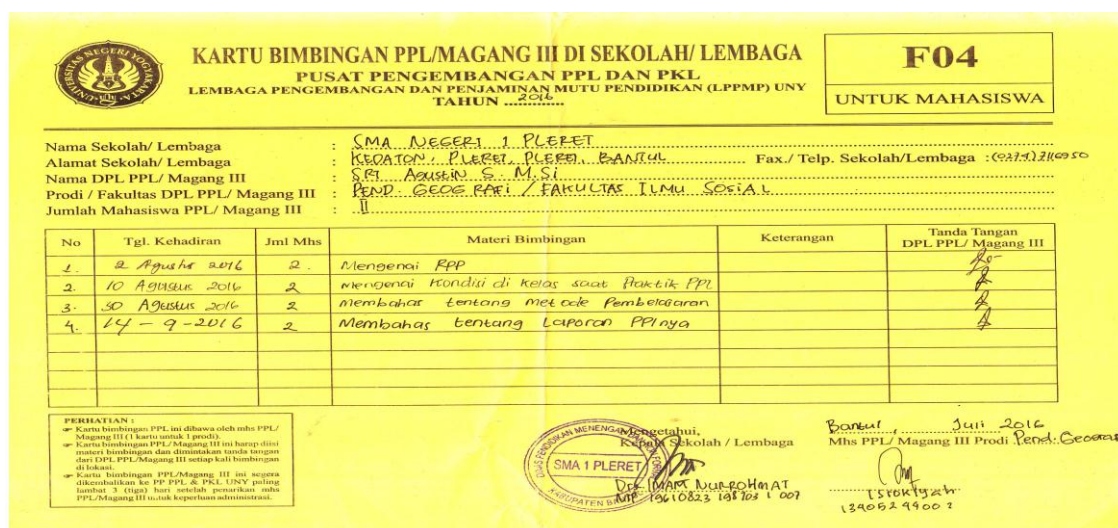 KARTU BIMBINGAN PPL/MAGANG III DI SEKOLAH/ LEMBAGA
PUSAT PENGEMBANGAN PPL DAN PKL
LEMBAGA PENGEMBANGAN DAN PENJAMINAN MUTU PENDIDIKAN (LPPMP) UNY
TAHUN 2016
F04
UNTUK MAHASISWA
UNIVERSITAS NEGERI YOGYAKARTA
Nama Sekolah/ Lembaga : SMA NEGERI 1 PLERET
Alamat Sekolah/ Lembaga : KEDATON, PLERET, PLERET, BANTUL Fax./ Telp. Sekolah/Lembaga : (0274) 7116950
Nama DPL PPL/ Magang III : SRI AGUSTIN S. M.Si
Prodi / Fakultas DPL PPL/ Magang III : PEND. GEOGRAFI / FAKULTAS ILMU SOSIAL
Jumlah Mahasiswa PPL/ Magang III : II
No Tgl. Kehadiran Jml Mhs Materi Bimbingan Keterangan Tanda Tangan DPL PPL/ Magang III
1. 2 Agustus 2016 2. Mengenai RPP
2. 10 Agustus 2016 2 Mengenai Kondisi di kelas saat Praktik PPL
3. 30 Agustus 2016 2 Membahas tentang metode Pembelajaran
4. 14 - 9 - 2016 2 Membahas tentang Laporan PPlnya
PERHATIAN :
Kartu bimbingan PPL ini dibawa oleh mhs PPL/
Magang III (1 kartu untuk 1 prodi).
Kartu bimbingan PPL/ Magang III ini harap diisi
materi bimbingan dan dimintakan tanda tangan
dari DPL PPL/Magang III setiap kali bimbingan
di lokasi.
Kartu bimbingan PPL/Magang III ini segera
dikembalikan ke PP PPL & PKL UNY paling
lambat 3 (tiga) hari setelah penarikan mhs
PPL/Magang III untuk keperluan administrasi.
Mengetahui,
Kepala Sekolah / Lembaga
SMA 1 PLERET
Drs. IMAM NURROHMAT
NIP 19610823 198703 1 007
Bantul, Juli 2016
Mhs PPL/ Magang III Prodi Pend. Geografi
Istokiyah
13405244002